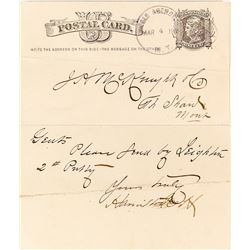 POSTAL CARD.
WRITE THE ADDRESS ON THIS SIDE - THE MESSAGE ON THE OTHER
MAR 4
J H McKnight & Co
Ft Shaw
Mont
Gents Please send by Leighton
2 lb Putty
Yours truly